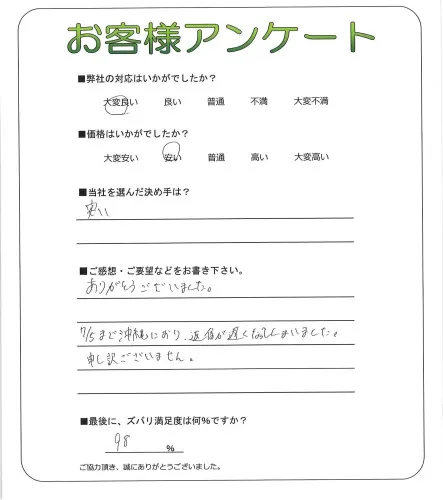 お客様アンケート
■弊社の対応はいかがでしたか？
大変良い 良い 普通 不満 大変不満
■価格はいかがでしたか？
大変安い 安い 普通 高い 大変高い
■当社を選んだ決め手は？
安い
■ご感想・ご要望などをお書き下さい。
ありがとうございました。
7/5まで沖縄におり、返信が遅くなってしまいました。
申し訳ございません。
■最後に、ズバリ満足度は何%ですか？
98 %
ご協力頂き、誠にありがとうございました。